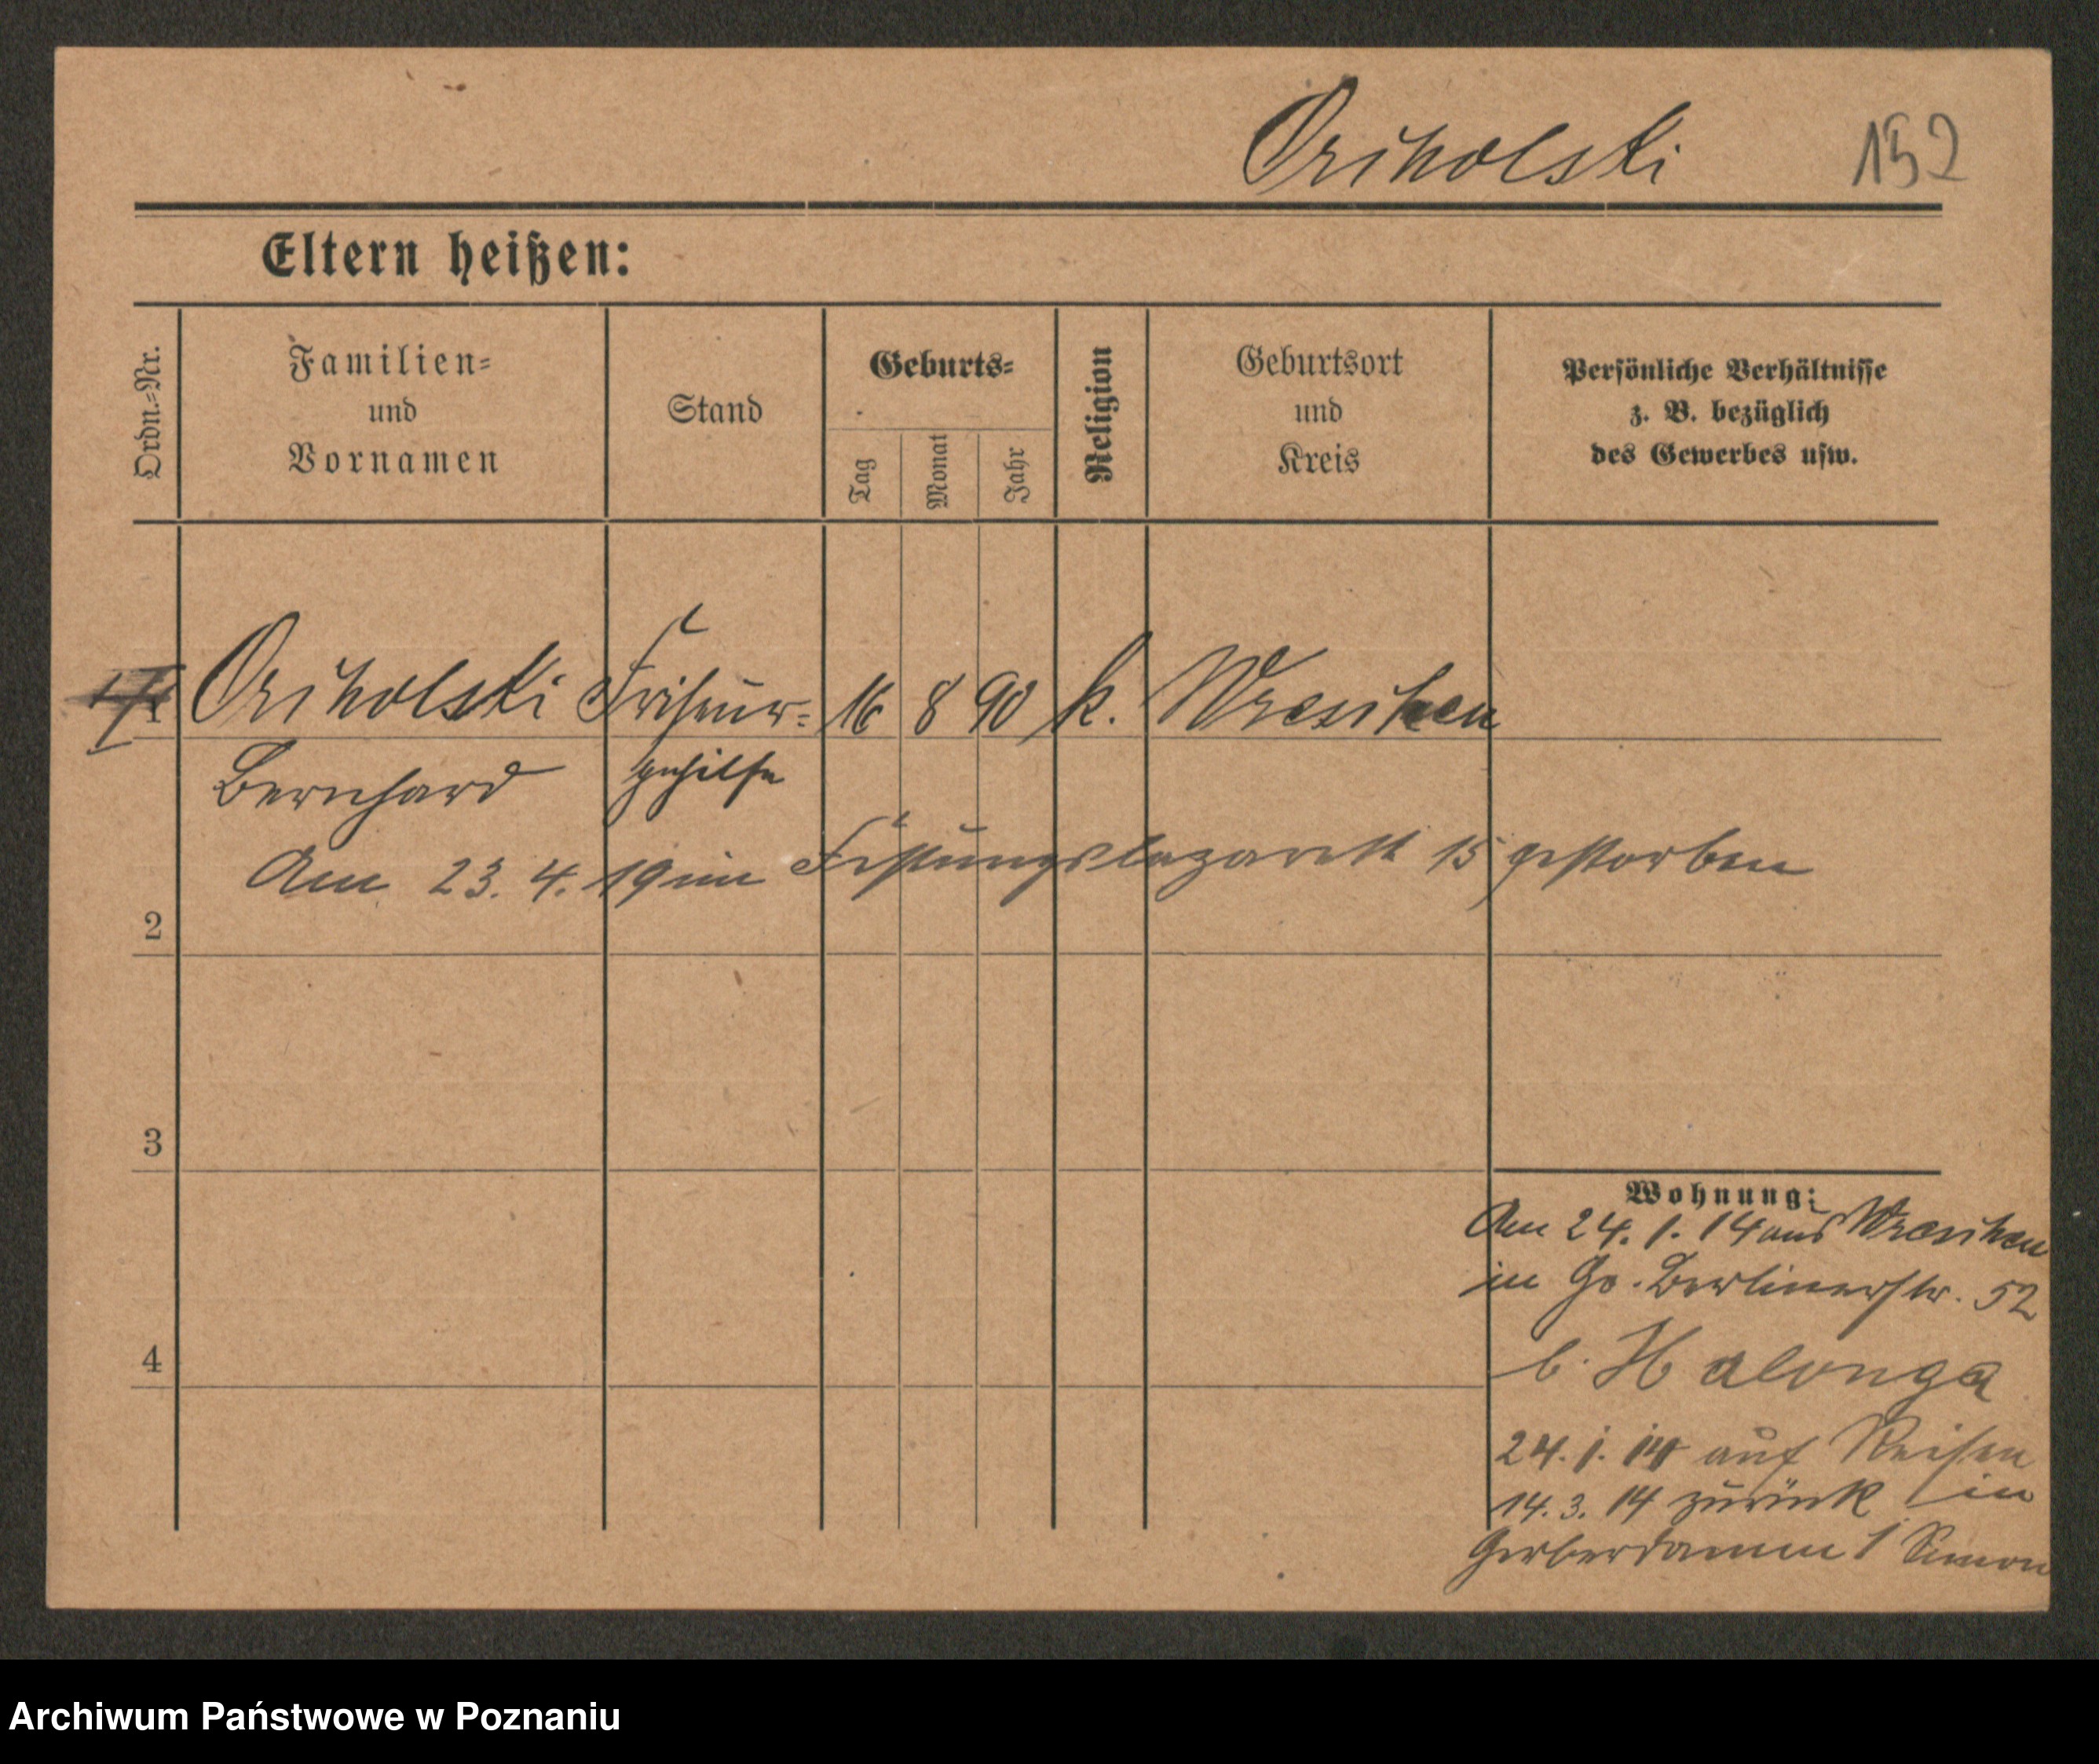 Orcholski 152
Eltern heißen:
Ordn.-Nr.
Familien-
und
Vornamen
Stand
Geburts-
Tag
Monat
Jahr
Religion
Geburtsort
und
Kreis
Persönliche Verhältnisse
z. B. bezüglich
des Gewerbes usw.
1 Orcholski Friseur- 16 8 90 k. Wreschen
Bernhard gehilfe
Am 23. 4. 19 im Festungslazarett 15 gestorben
2
3
4
Wohnung:
Am 24. 1. 14 aus Wreschen
in Gr. Berlinerstr. 52
b.
24. 1. 14 auf Reisen
14. 3. 14 zurück in
Gerberdamm 1 Simon
Archiwum Państwowe w Poznaniu